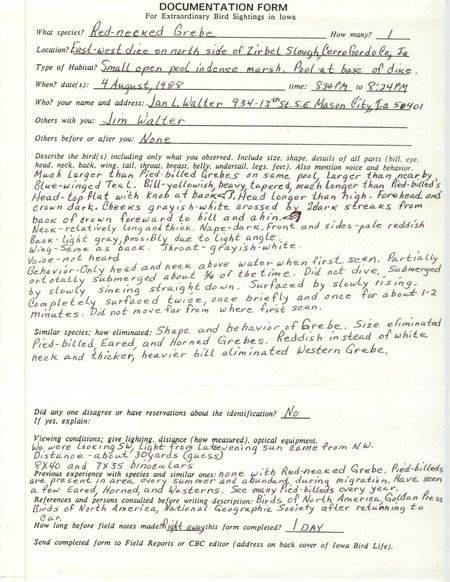 DOCUMENTATION FORM
For Extraordinary Bird Sightings in Iowa
What species? Red-necked Grebe How many? 1
Location? East-west dike on north side of Zirbel Slough, Cerro Gordo Co., Ia
Type of Habitat? Small open pool in dense marsh. Pool at base of dike.
When? date(s): 4 August, 1988 time: 8:14PM to 8:24PM
Who? your name and address: Jan L. Walter 934-13th St. S.E. Mason City, Ia 50401
Others with you: Jim Walter
Others before or after you: None
Describe the bird(s) including only what you observed. Include size, shape, details of all parts (bill, eye,
head, neck, back, wing, tail, throat, breast, belly, undertail, legs, feet). Also mention voice and behavior.
Much larger than Pied-billed Grebes on same pool, larger than nearby
Blue-winged Teal. Bill-yellowish, heavy, tapered, much longer than Pied-billed's
Head-top flat with knob at back. Head longer than high. Forehead and
crown dark. Cheeks grayish-white crossed by 2 dark streaks from
back of crown foreward to bill and chin.
Neck-relatively long and thick. Nape-dark. Front and sides-pale reddish
Back-Light gray, possibly due to light angle.
Wing-Same as back. Throat-grayish-white.
Voice-not heard
Behavior-Only head and neck above water when first seen. Partially
or totally submerged about ¾ of the time. Did not dive. Submerged
by slowly sinking straight down. Surfaced by slowly rising.
Completely surfaced twice, once briefly and once for about 1-2
minutes. Did not move far from where first seen.
Similar species; how eliminated: Shape and behavior of Grebe. Size eliminated
Pied-billed, Eared, and Horned Grebes. Reddish instead of white
neck and thicker, heavier bill eliminated Western Grebe.
Did any one disagree or have reservations about the identification? No
If yes, explain:
Viewing conditions; give lighting, distance (how measured), optical equipment.
We were looking SW, light from late evening sun came from N.W.
Distance-about 30 yards (guess)
8X40 and 7X35 binoculars
Previous experience with species and similar ones: none with Red-necked Grebe. Pied-billeds
are present in area every summer and abundant during migration. Have seen
a few Eared, Horned, and Westerns. See many Pied-billeds every year.
References and persons consulted before writing description: Birds of North America, Golden Press
Birds of North America, National Geographic Society after returning to
car.
How long before field notes made? Right away this form completed? 1 DAY
Send completed form to Field Reports or CBC editor (address on back cover of Iowa Bird Life).